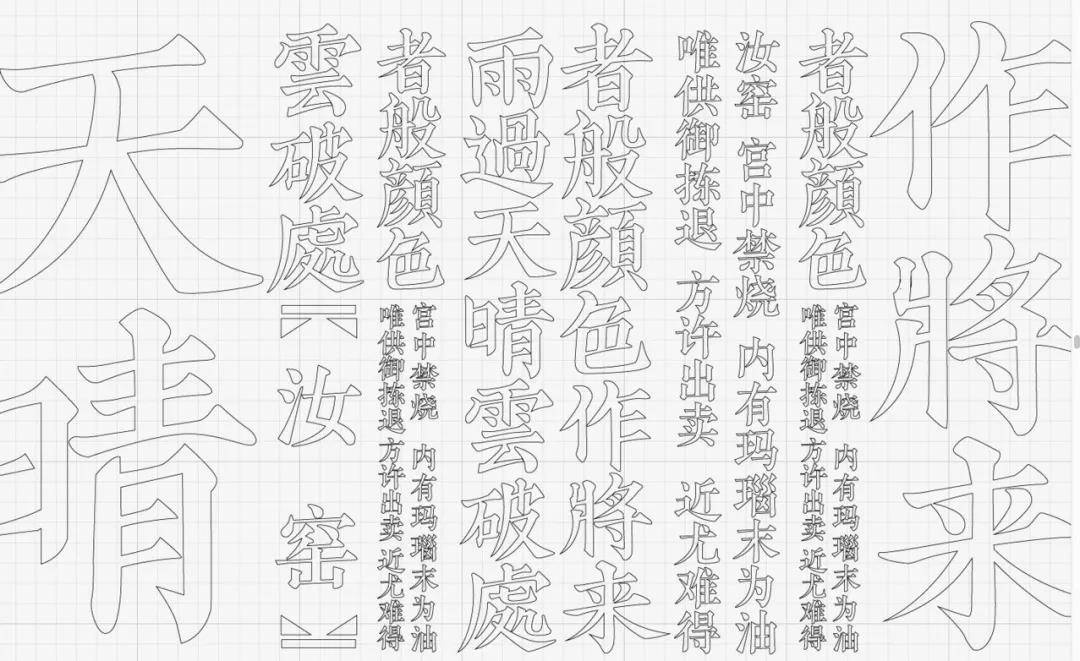 作將来
者般顔色
宫中禁烧 内有玛瑙末为油
唯供御拣退 方许出卖 近尤难得
汝窑 宫中禁烧 内有玛瑙末为油
唯供御拣退 方许出卖 近尤难得
者般顔色作將来
雨過天晴雲破處
者般顔色
宫中禁烧 内有玛瑙末为油
唯供御拣退 方许出卖 近尤难得
雲破處
【汝窑】
天晴